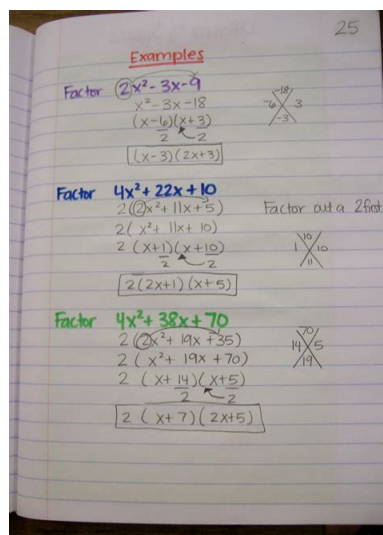 25
Examples
Factor 2x² - 3x - 9
x² - 3x - 18
(x - 6)(x + 3)
2 2
(x - 3)(2x + 3)
-18
-6 3
-3
Factor 4x² + 22x + 10
2(2x² + 11x + 5)
2(x² + 11x + 10)
2 (x + 1)(x + 10)
2 2
2(2x + 1)(x + 5)
Factor out a 2 first
10
1 10
11
Factor 4x² + 38x + 70
2(2x² + 19x + 35)
2( x² + 19x + 70)
2 (x + 14)(x + 5)
2 2
2 (x + 7)(2x + 5)
70
14 5
19